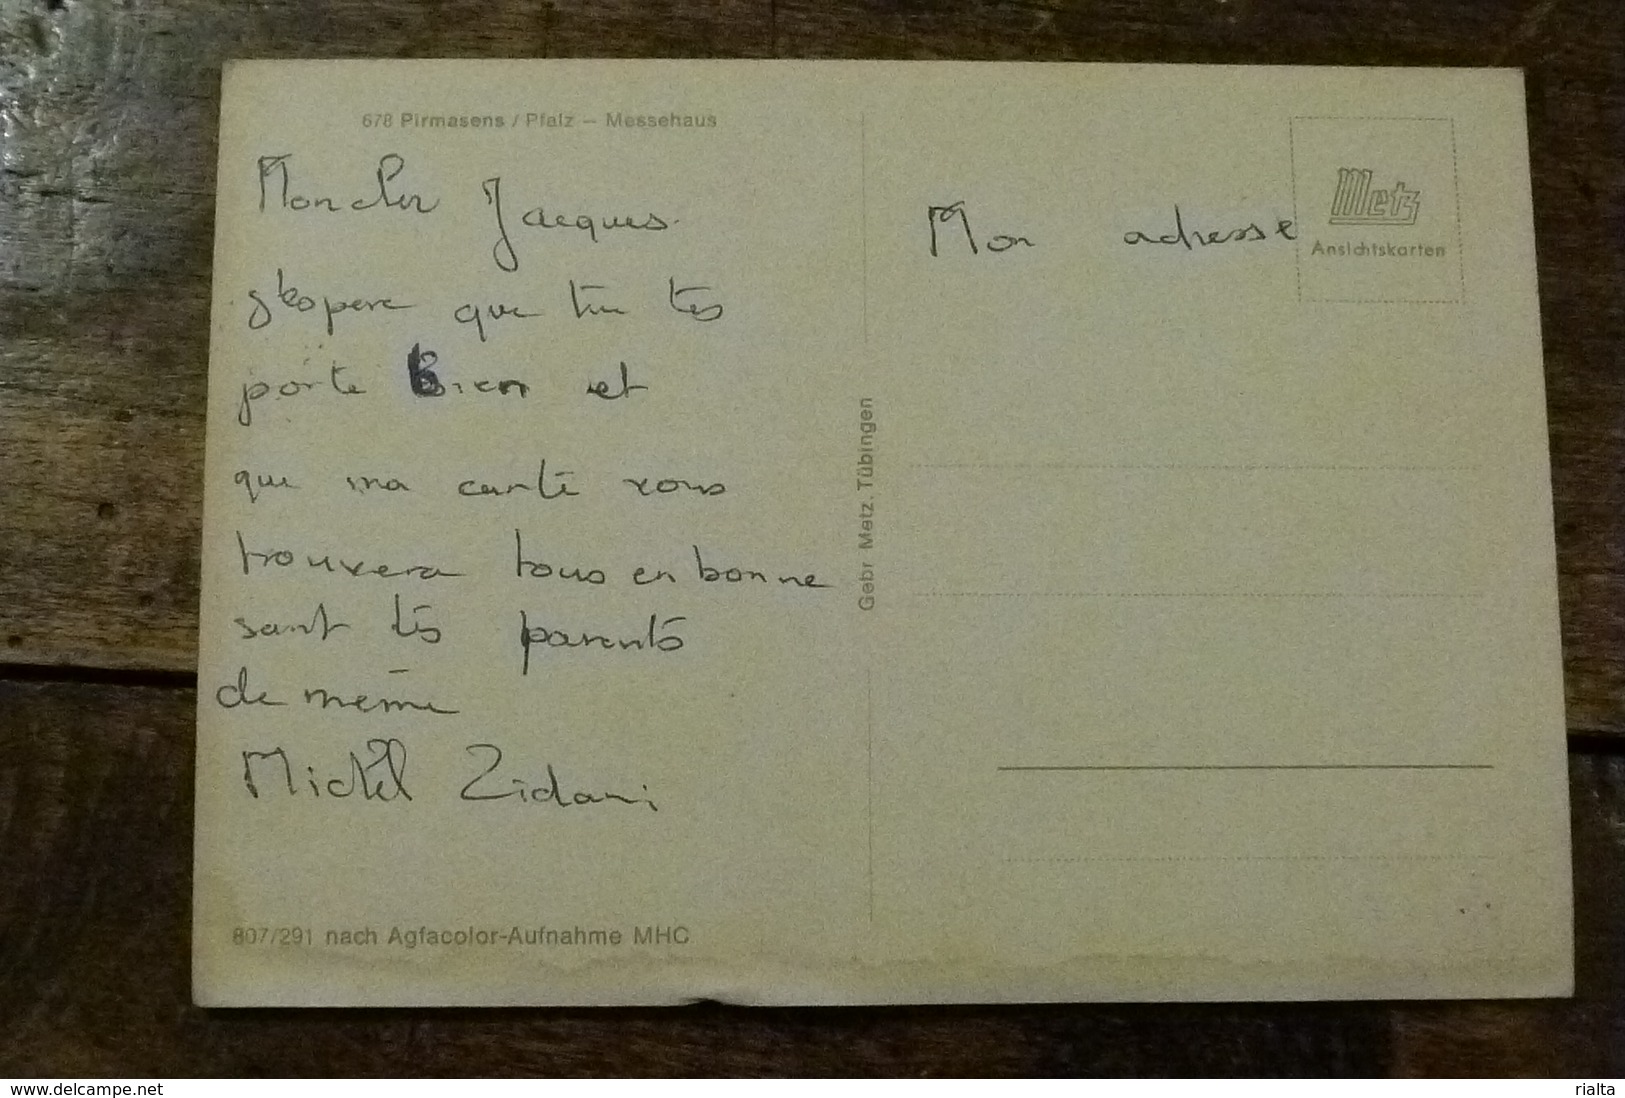 678 Pirmasens / Pfalz — Messehaus
Mon cher Jacques.
J'espere que tu tes
porte bien et
que ma carte vous
trouvera tous en bonne
sant tes parents
de meme
Michel Zidani
807/291 nach Agfacolor-Aufnahme MHC
Gebr Metz, Tübingen
Mon adresse
Metz
Ansichtskarten
www.delcampe.net
rialta